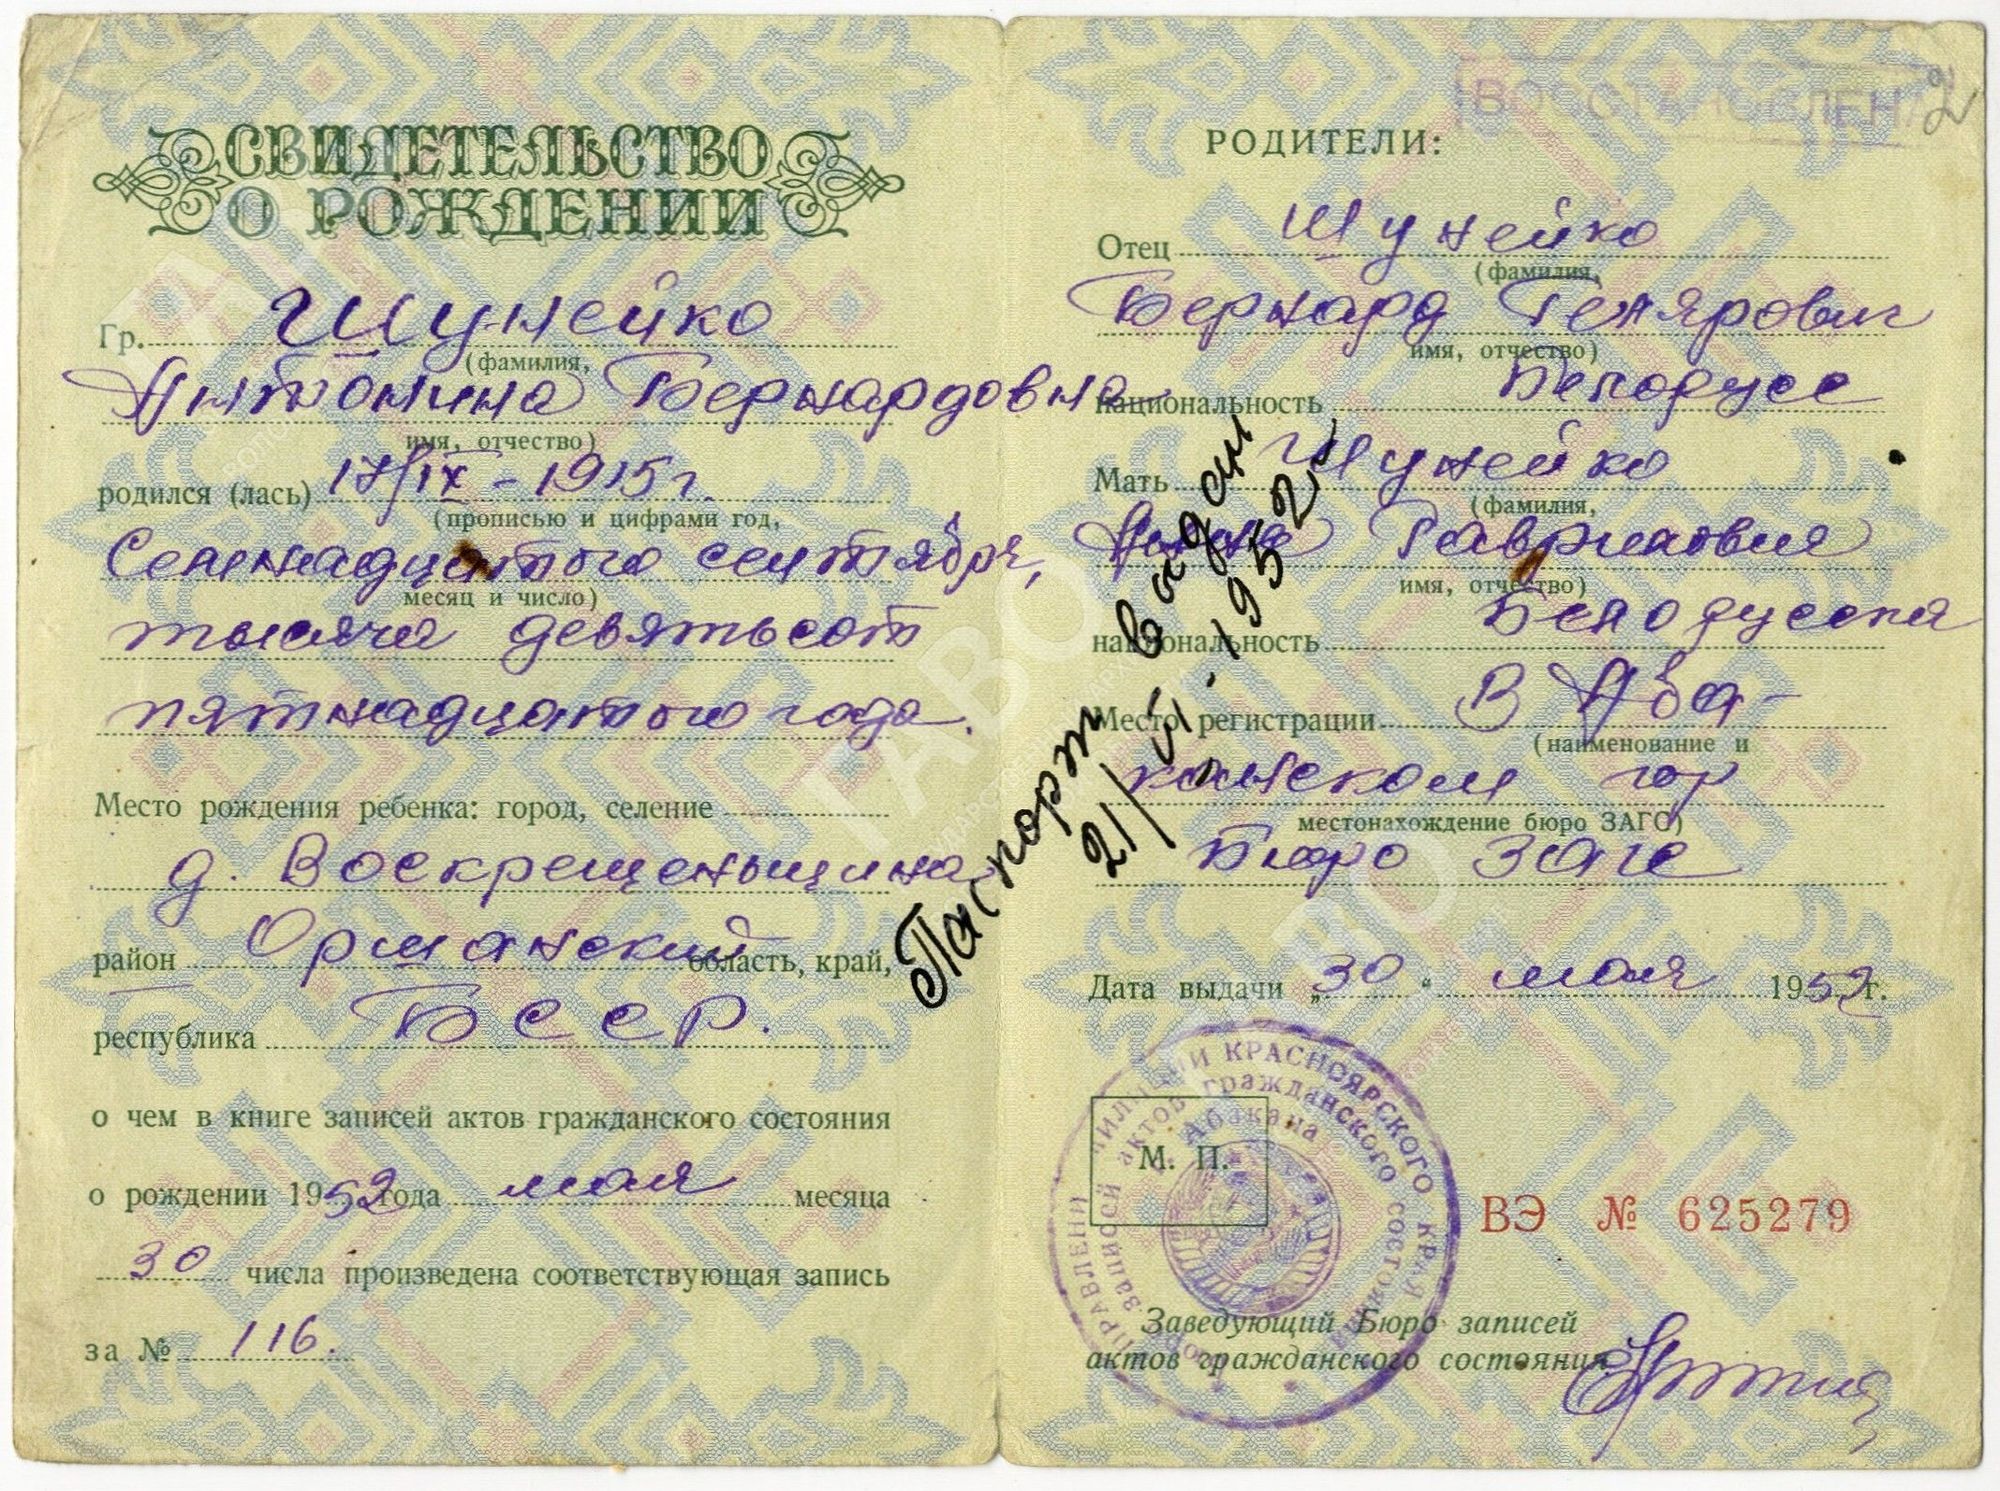 СВИДЕТЕЛЬСТВО
О РОЖДЕНИИ
Гр. Шунейко
(фамилия,
Антонина Бернардовна
имя, отчество)
родился (лась) 17/IX - 1915 г.
(прописью и цифрами год,
Семнадцатого сентября,
месяц и число)
тысяча девятьсот
пятнадцатого года.
Место рождения ребенка: город, селение
д. Воскрещеньщина
район Оршанский область, край,
республика БССР.
о чем в книге записей актов гражданского состояния
о рождении 1952 года мая месяца
30 числа произведена соответствующая запись
за № 116.
Паспорт выдан
21/VI-1952
ВОССТАНОВЛЕН
2
РОДИТЕЛИ:
Отец Шунейко
(фамилия,
Бернард
имя, отчество)
национальность Белорусс
Мать Шунейко
(фамилия,
Гавриловна
имя, отчество)
национальность Белорусска
Место регистрации В Аба-
(наименование и
канском гор
местонахождение бюро ЗАГС)
Бюро ЗАГС
Дата выдачи „30" мая 1952 г.
М. П.
МИЛИЦИИ КРАСНОЯРСКОГО КРАЯ
записей актов гражданского состояния
г. Абакана
ВЭ № 625279
Заведующий Бюро записей
актов гражданского состояния
ГАВО